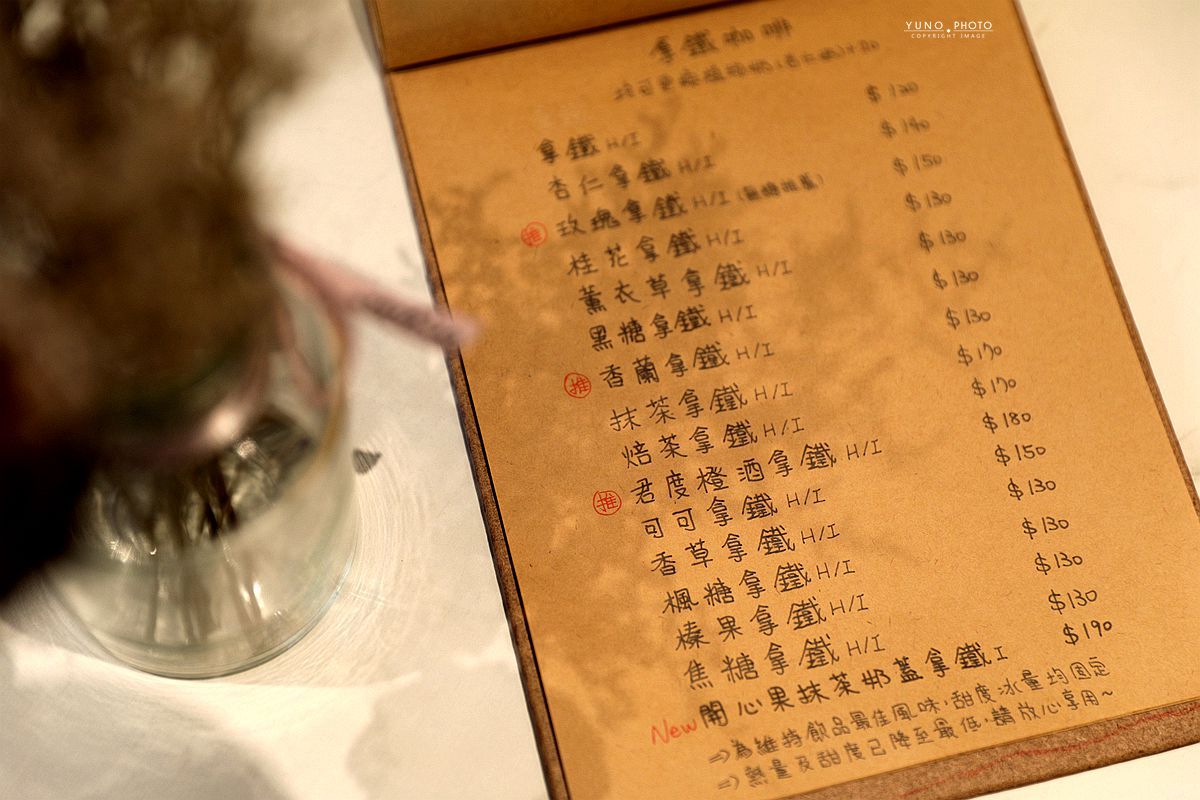 YUNO PHOTO
COPYRIGHT IMAGE
拿鐵咖啡
均可更換植物奶
拿鐵 H/I $120
杏仁拿鐵 H/I $140
推 玫瑰拿鐵 H/I $150
桂花拿鐵 H/I $130
薰衣草拿鐵 H/I $130
黑糖拿鐵 H/I $130
推 香蘭拿鐵 H/I $130
抹茶拿鐵 H/I $170
焙茶拿鐵 H/I $170
推 君度橙酒拿鐵 H/I $180
可可拿鐵 H/I $150
香草拿鐵 H/I $130
楓糖拿鐵 H/I $130
榛果拿鐵 H/I $130
焦糖拿鐵 H/I $130
New 開心果抹茶奶蓋拿鐵 I $190
⇒為維持飲品最佳風味，甜度冰量均固定
⇒熱量及甜度已降至最低，請放心享用~